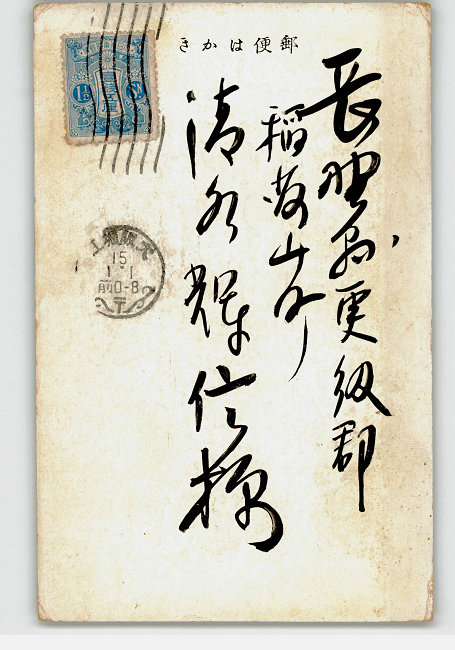 郵便はかき
長野県更級郡
稲荷山町
清水輝信様
1½ Sn
15
1.1
前0-8